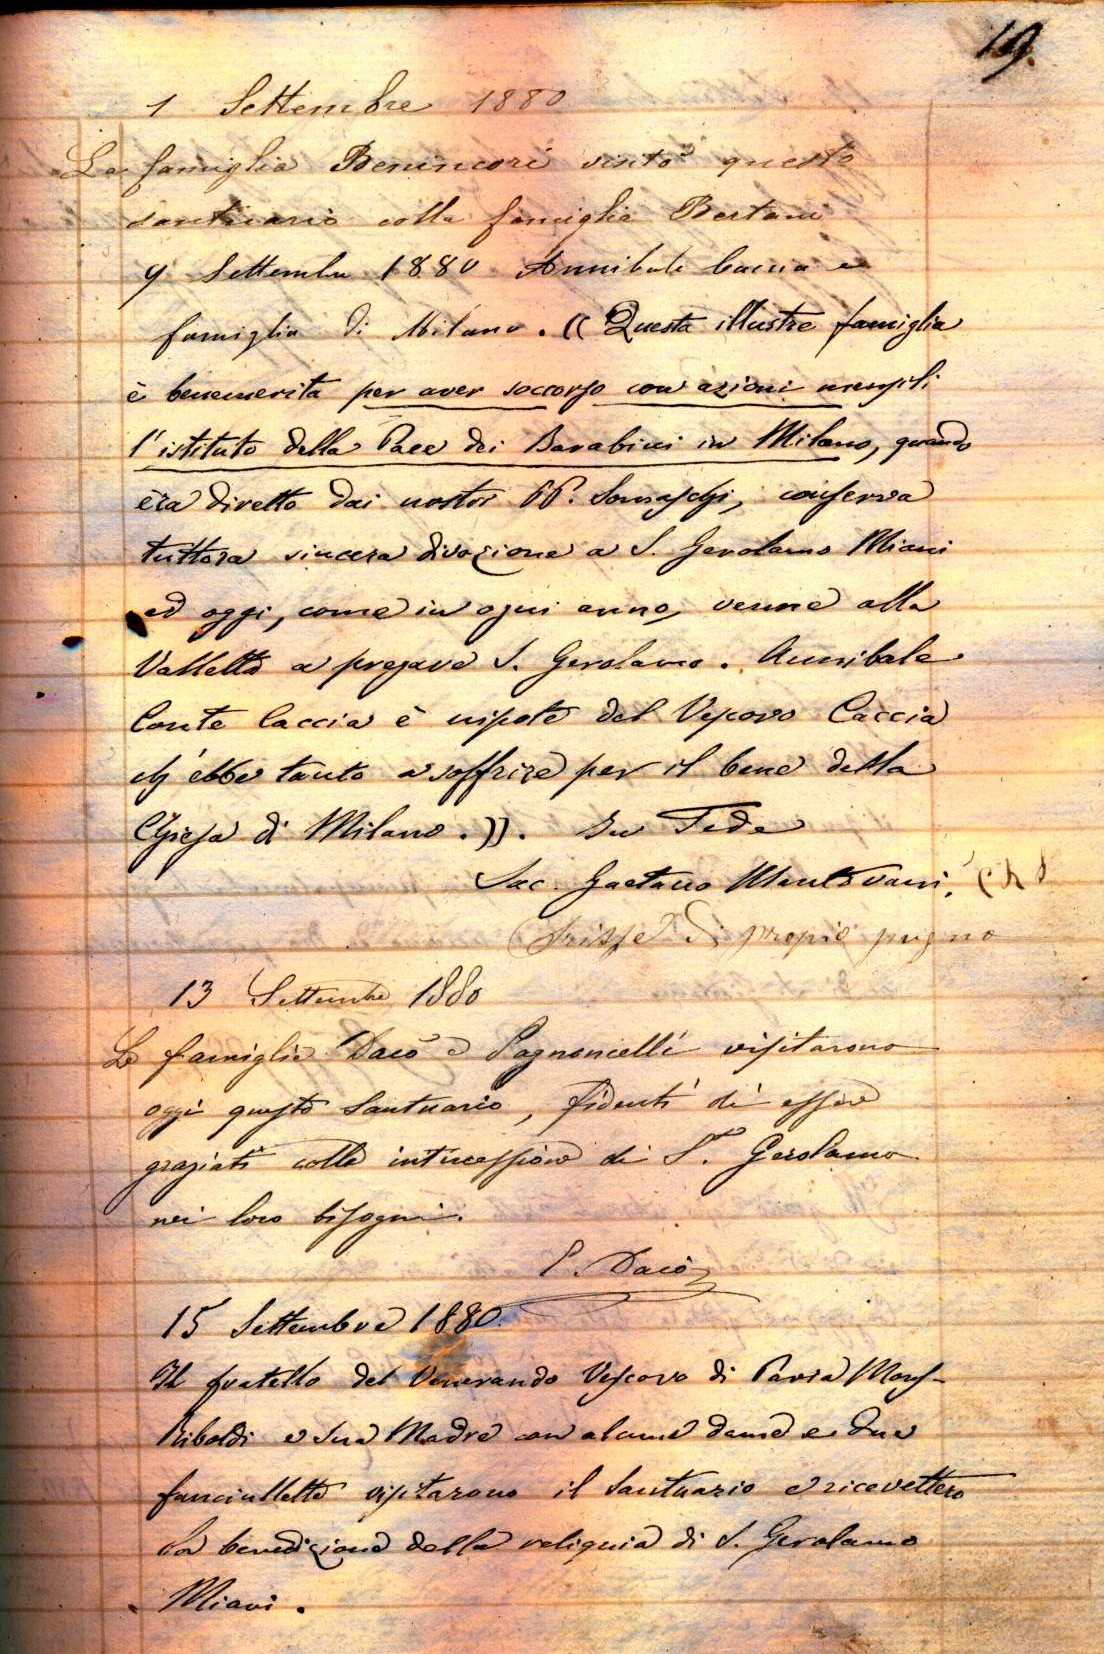 19.
1 Settembre 1880
La famiglia Benincori visitò questo
santuario colla famiglia Bertani
9 Settembre 1880 Annibale Caccia e
famiglia di Milano. (( Questa illustre famiglia
è benemerita per aver soccorso con azioni mensili
l'istituto della Pace dei Barabini in Milano, quando
era diretto dai nostri PP. Somaschi, conserva
tuttora sincera divozione a S. Gerolamo Miani
ed oggi, come in ogni anno, venne alla
Valletta a pregare S. Gerolamo. Annibale
Conte Caccia è nipote del Vescovo Caccia
ch'ebbe tanto a soffrire per il bene della
Chiesa di Milano. )). In Fede
Sac. Gaetano Mantovani,
Scrisse di proprio pugno
13 Settembre 1880
Le famiglie Dacò e Pagnoncelli visitarono
oggi questo Santuario, fidenti di essere
graziati colla intercessione di S. Gerolamo
nei loro bisogni.
P. Dacò
15 Settembre 1880.
Il fratello del Venerando Vescovo di Pavia Mons.
Riboldi e sua Madre con alcune dame e due
fanciullette visitarono il Santuario e ricevettero
la benedizione della reliquia di S. Gerolamo
Miani.